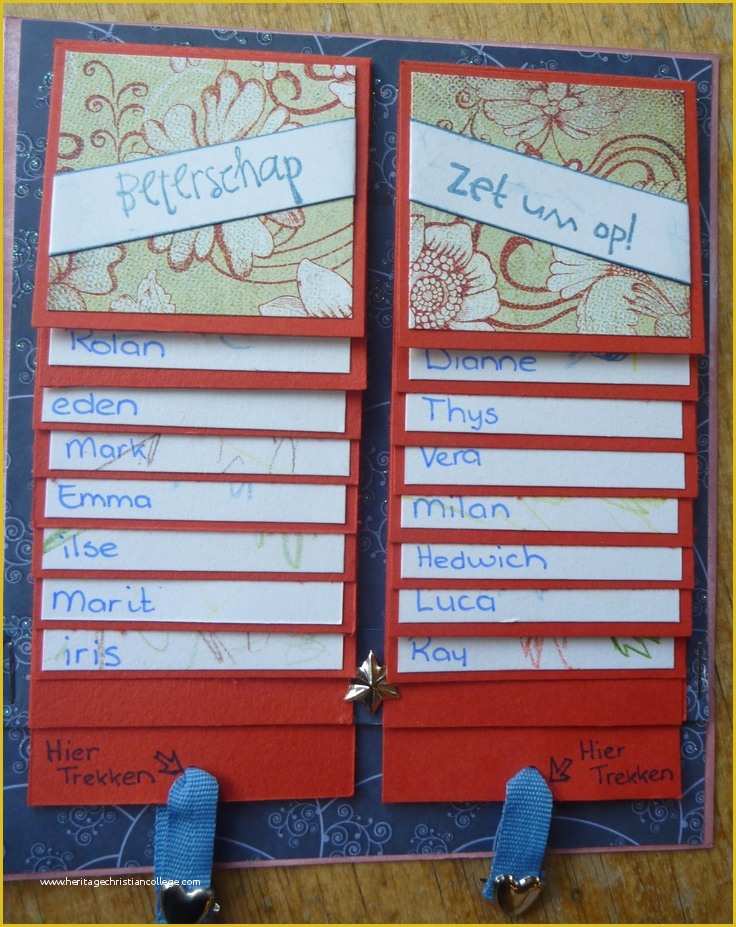 Beterschap
Kolan
eden
Mark
Emma
ilse
Marit
iris
Hier
Trekken
Zet um op!
Dianne
Thys
Vera
Milan
Hedwich
Luca
Kay
Hier
Trekken
www.heritagechristiancollege.com